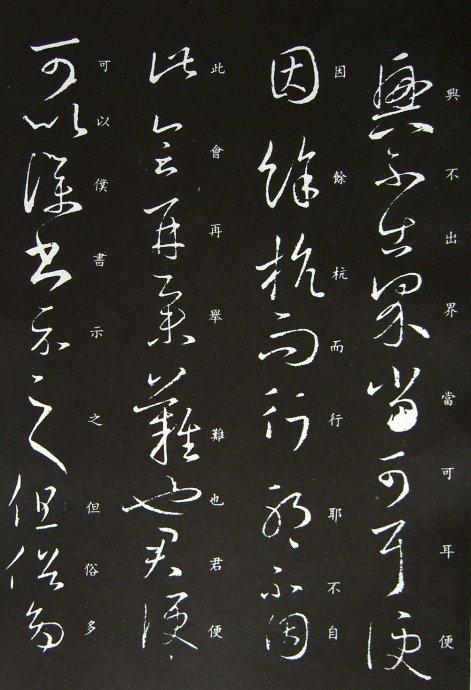 興不出界當可耳便
因餘杭而行耶不自
此會再舉難也君便
可以僕書示之但俗多